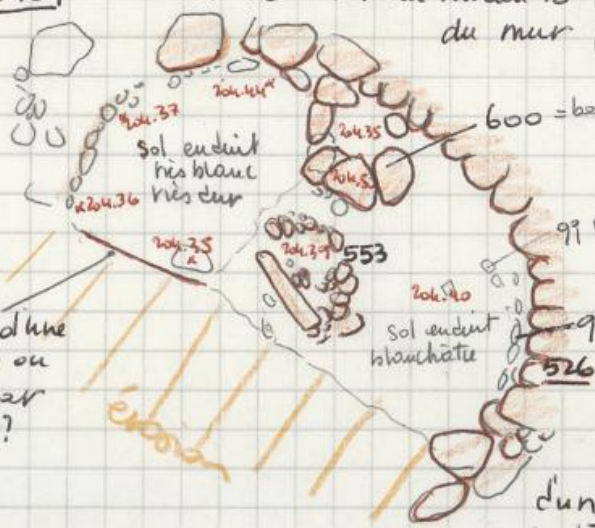 du mur
204.37
204.44
Sol enduit
très blanc
très dur
204.35
600 =
204.5
204.36
204.35
204.39
553
99
204.40
Sol enduit
blanchâtre
9
526
d'une
ou
?
érosion
d'un